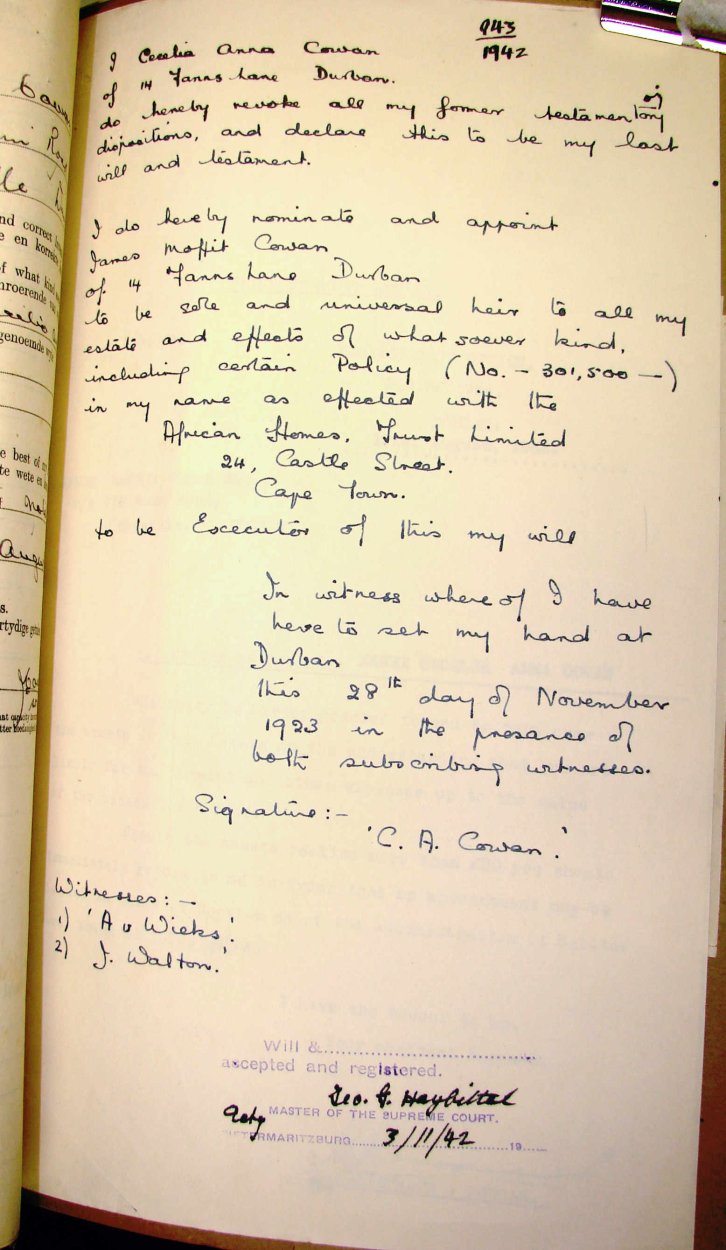 943
1942
I Cecelia Anna Cowan
of 14 Fanns Lane Durban.
do hereby revoke all my former testamentory
dispositions, and declare this to be my last
will and testament.
I do hereby nominate and appoint
James Moffit Cowan
of 14 Fanns Lane Durban
to be sole and universal heir to all my
estate and effects of whatsoever kind,
including certain Policy (No. - 301,500 -)
in my name as effected with the
African Homes, Trust Limited
24, Castle Street.
Cape Town.
to be Excecutor of this my will
In witness where of I have
here to set my hand at
Durban
this 28th day of November
1923 in the presance of
both subscribing witnesses.
Signature:-
'C. A. Cowan.'
Witnesses:-
1) 'A v Wicks'.
2) J. Walton.'
Will &
accepted and registered.
Geo. J. Haybittel
Actg MASTER OF THE SUPREME COURT.
PIETERMARITZBURG 3/11/42 19